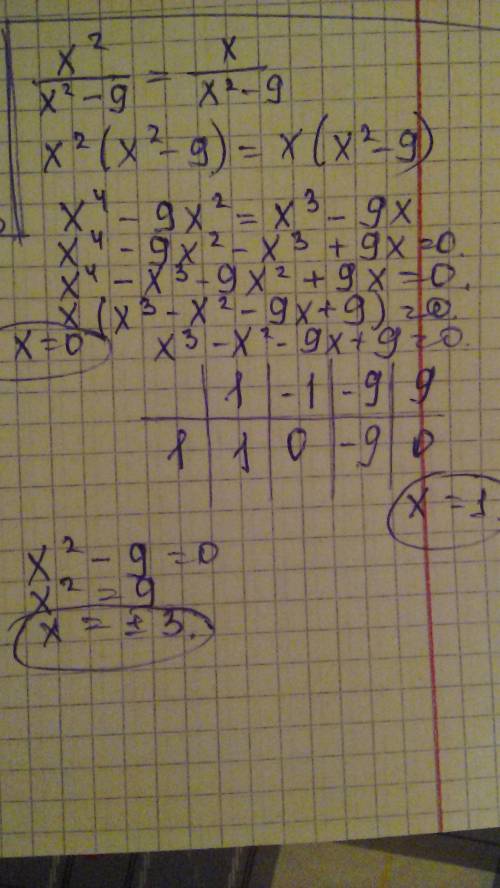 x²/(x²-9) = x/(x²-9)
x²(x²-9) = x(x²-9)
x⁴ - 9x² = x³ - 9x
x⁴ - 9x² - x³ + 9x = 0.
x⁴ - x³ - 9x² + 9x = 0.
x(x³ - x² - 9x + 9) = 0.
x = 0 x³ - x² - 9x + 9 = 0.
1 | -1 | -9 | 9
1 | 1 | 0 | -9 | 0
x = 1
x² - 9 = 0
x² = 9
x = ±3.